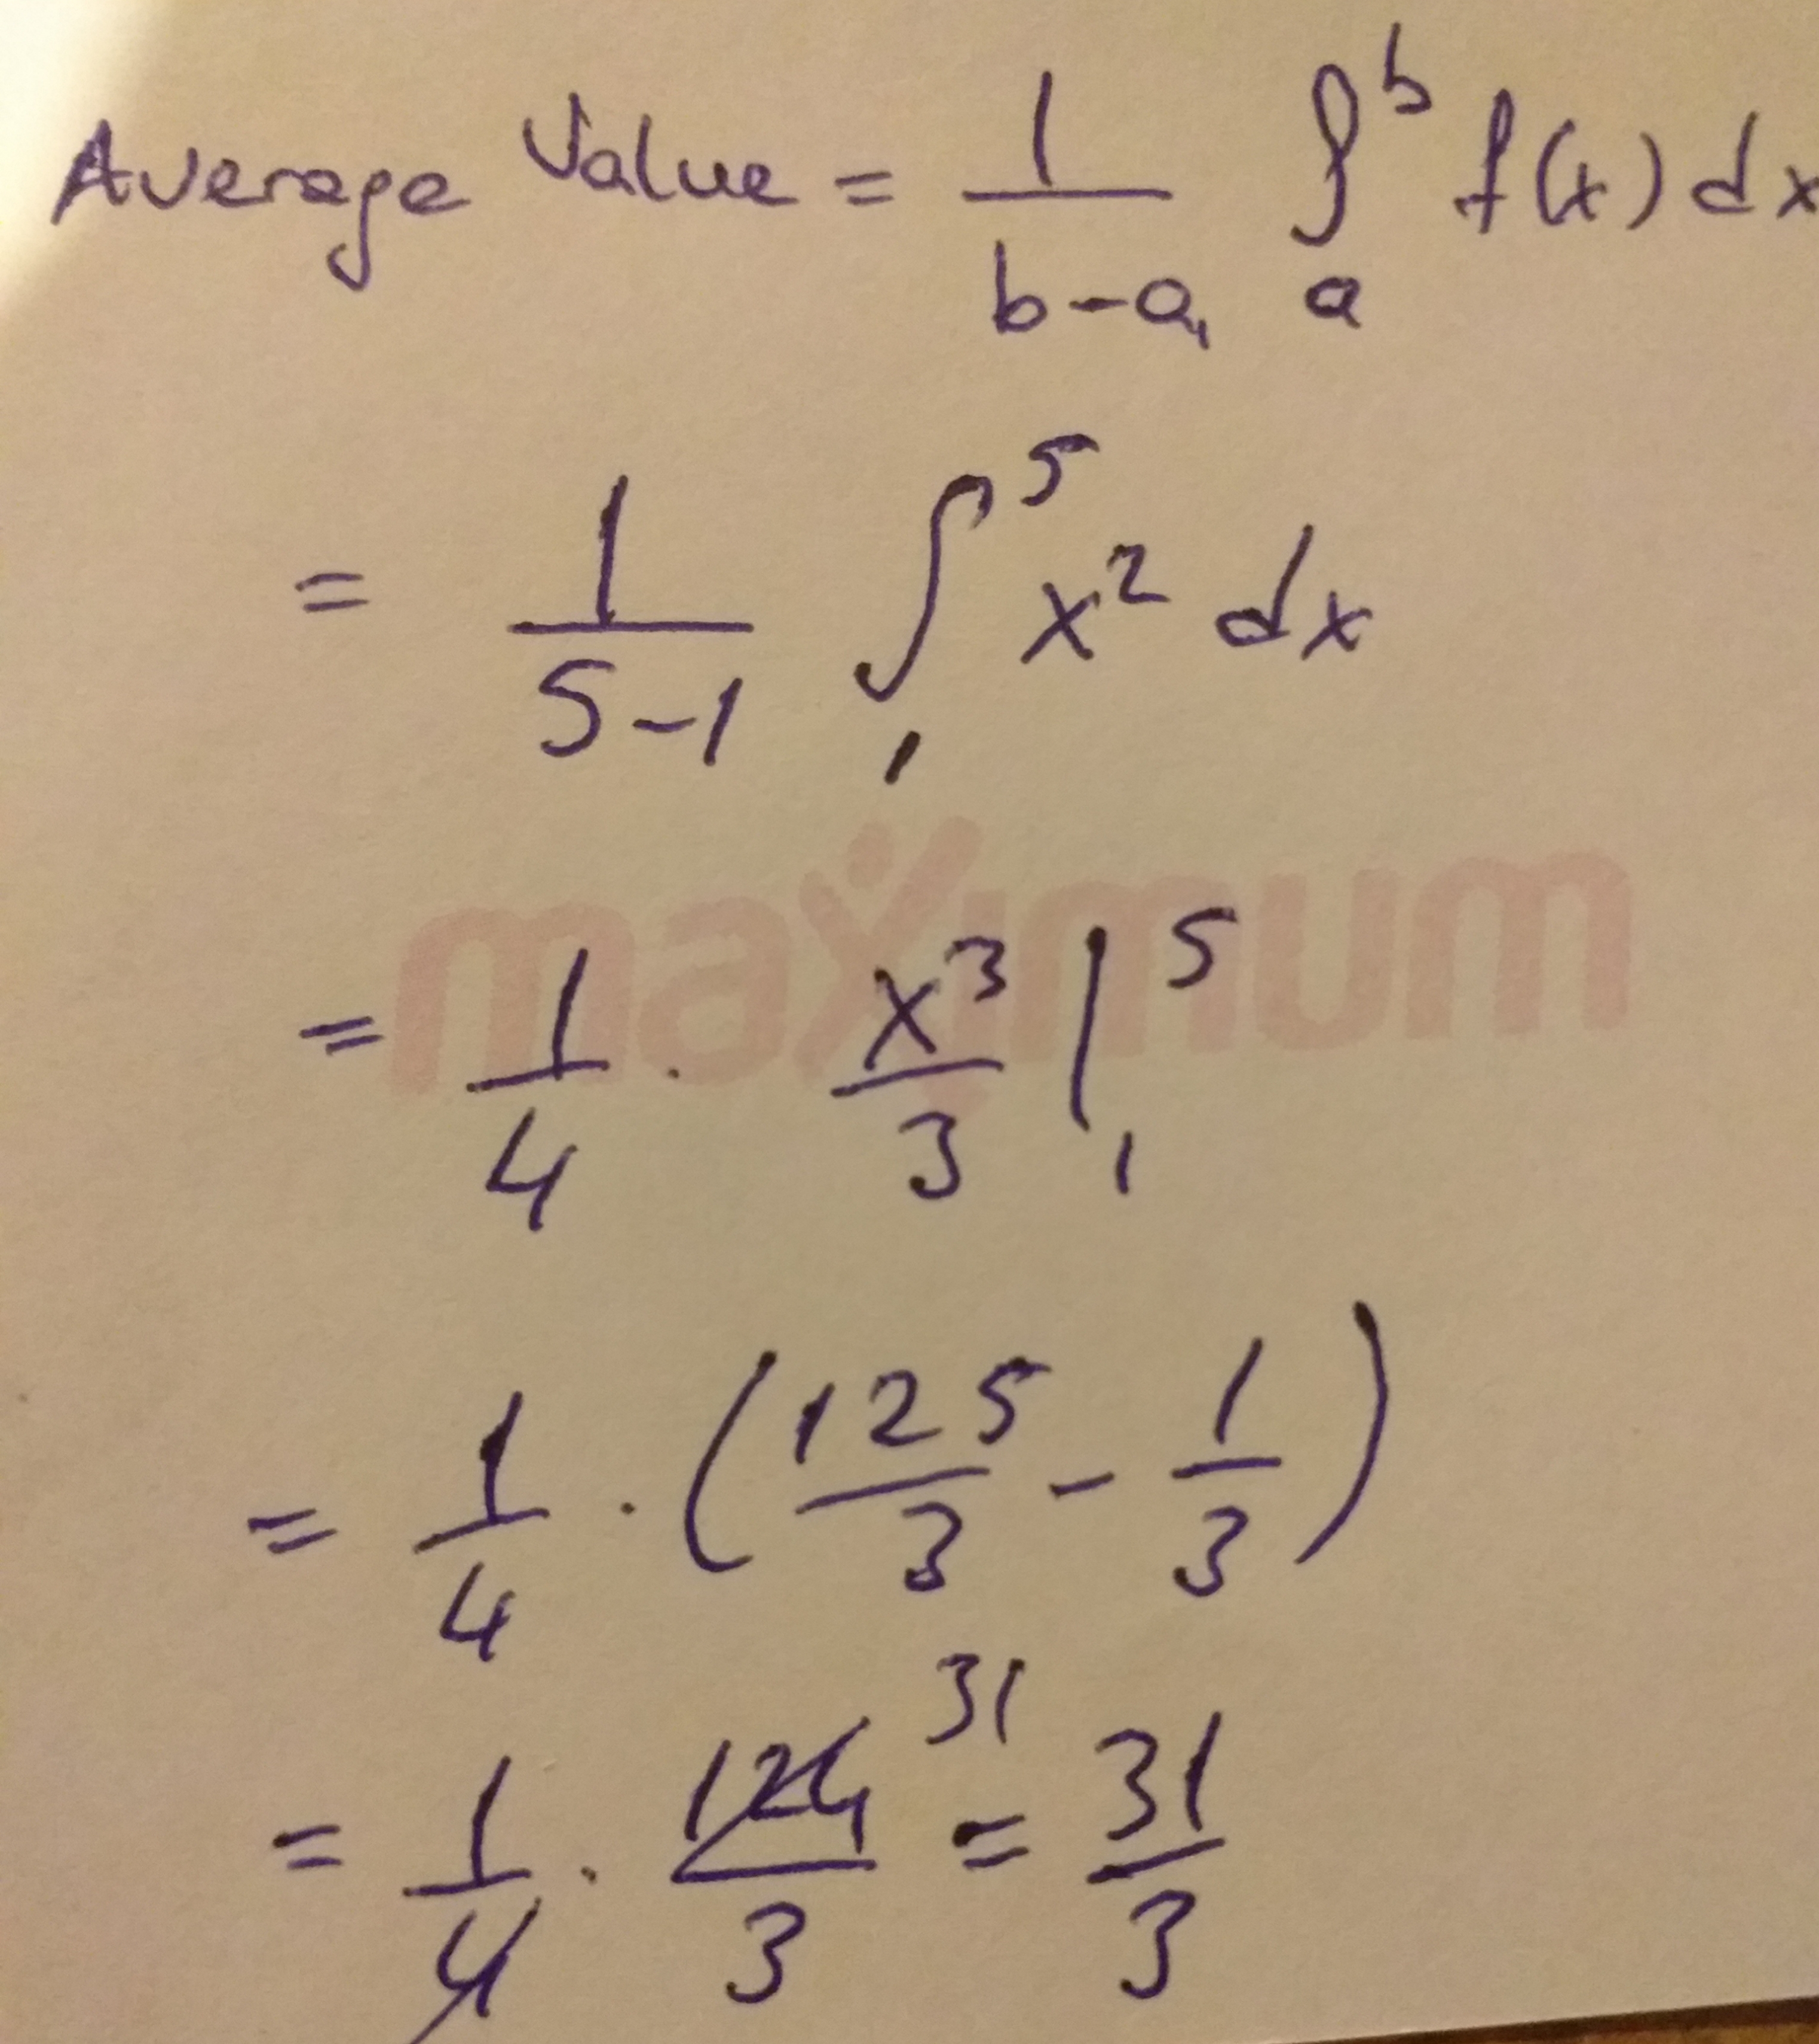 Average Value = 1/(b-a) ∫_a^b f(x) dx
= 1/(5-1) ∫_1^5 x² dx
maximum
= 1/4 · x³/3 |_1^5
= 1/4 · (125/3 - 1/3)
= 1/4 · 124/3 31 = 31/3